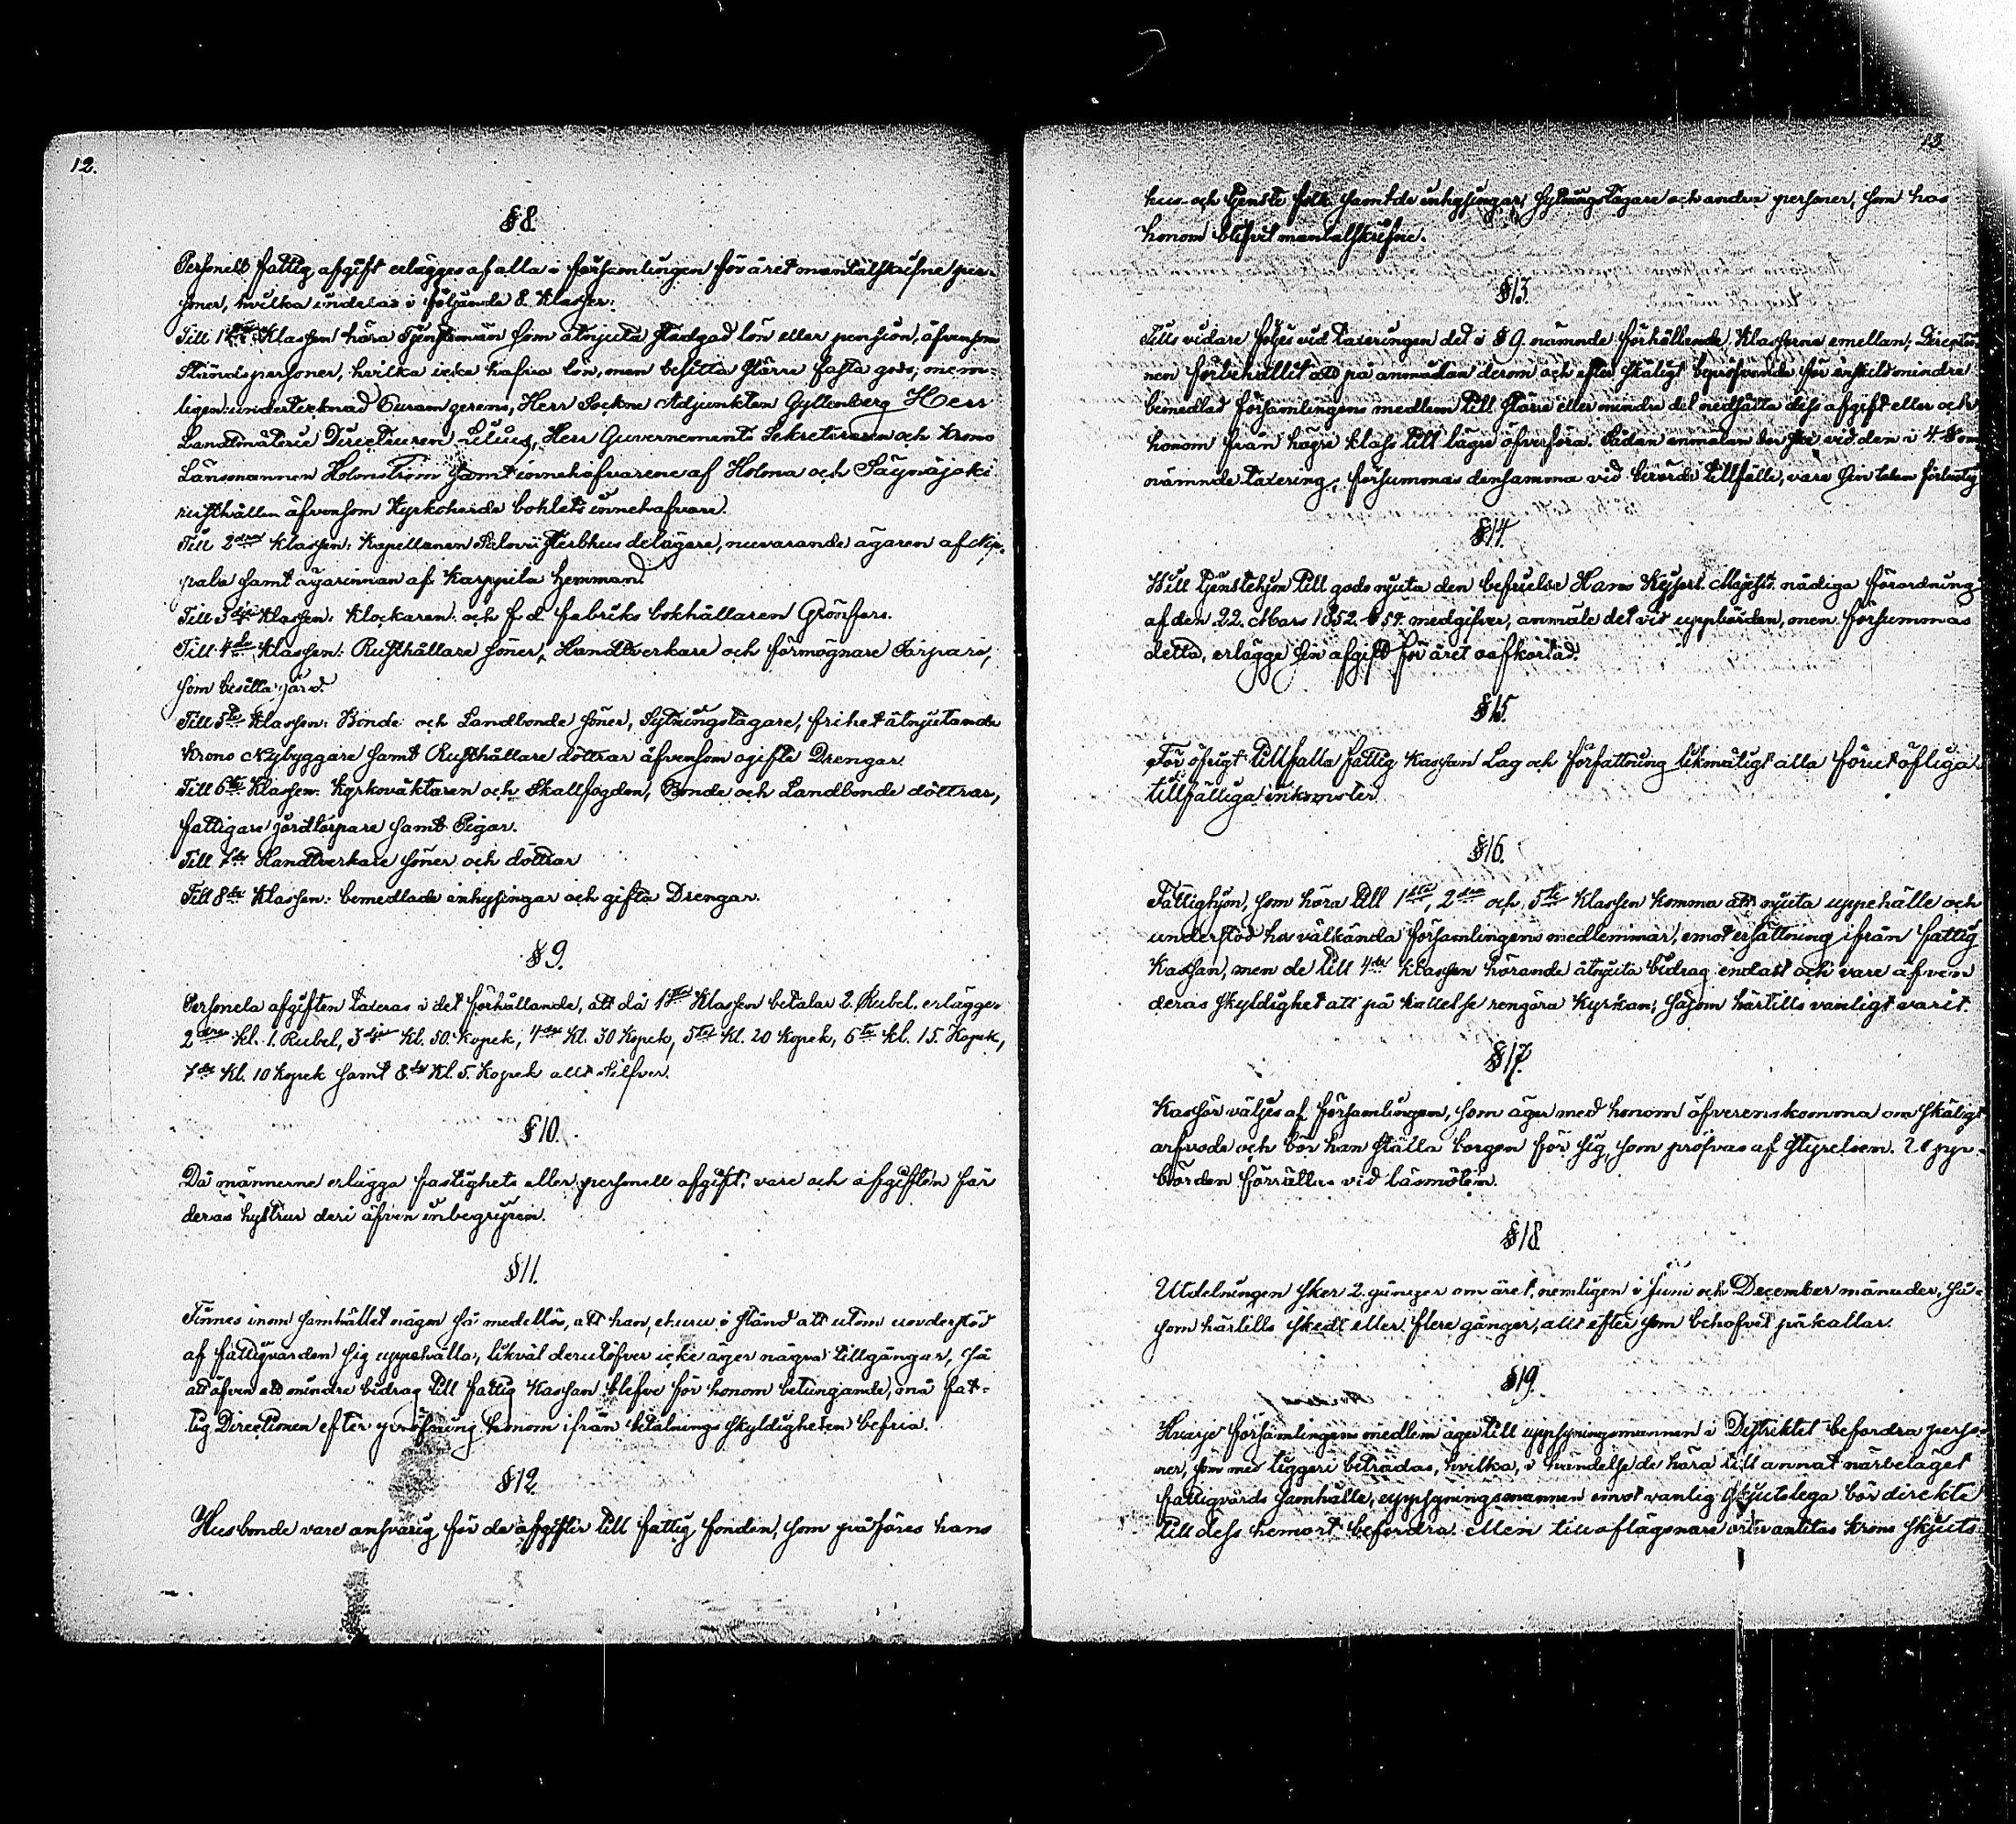 12.
§ 8.
Personell fattig afgift erlägges af alla i församlingen för året mantalskrifne per-
soner, hvilka indelas i följande 8. klasser:
Till 1sta Klassen höra Tjenstemän som åtnjuta stadgad lön eller pension, äfvensom
Ståndspersoner, hvilka icke hafva lön, men besitta större fasta gods, nem-
ligen: undertecknad Curam gerens, Herr Sockne Adjunkten Gyllenberg Herr
Landtmäterie Directeuren Lilius, Herr Guvernements Sekreteraren och Krono
Länsmannen Holmström samt innehafvarene af Holma och Säynäjoki
rusthållen äfvensom Kyrkoherde bohlets innehafvare.
Till 2dra klassen: Kapellanen Palovii sterbhus delägare, nuvarande ägaren af Nip-
pala samt ägarinnan af Karppila hemman.
Till 3dje Klassen: Klockaren och f.d. fabriks bokhållaren Grönfors.
Till 4de Klassen: Rusthållare söner, Handtverkare och förmögnare Torpare,
som besitta jord.
Till 5te Klassen: Bonde och Landbonde söner, Sytningstagare, frihet åtnjutande
Krono Nybyggare samt Rusthållare döttrar äfvensom ogifte Drengar.
Till 6te Klassen: Kyrkoväktaren och Skallfogden, Bonde och Landbonde döttrar,
fattigare jordtorpare samt Pigor.
Till 7de Handtverkare söner och döttrar
Till 8de Klassen: bemedlade inhysingar och gifta Drengar.
§ 9.
Personela afgiften taxeras i det förhållande, att då 1sta Klassen betalar 2. Rubel. erlägger
2dra kl. 1. Rubel, 3dje Kl. 50. Kopek, 4de Kl. 30 Kopek, 5te kl. 20 Kopek, 6te kl. 15. Kopek,
7de Kl. 10 Kopek samt 8de Kl. 5. Kopek allt Silfver.
§ 10.
Då männerne erlägga fastighets eller personell afgift, vare och afgiften för
deras hustrur deri äfven inbegripen.
§ 11.
Finnes inom samhället någon så medellös, att han, ehuru i stånd att utom understöd
af fattigvården sig uppehålla, likväl derutöfver icke äger några tillgångar, så
att äfven ett mindre bidrag till fattig Kassan blefve för honom betungande, må fat-
tig Directionen efter pröfning honom ifrån betalnings skyldigheten befria.
§ 12.
Husbonde vare ansvarig för de afgifter till fattig fonden, som påföres hans
13.
hus- och tjenste folk samt de inhysingar, sytningstagare och andra personer, som hos
honom blifvit mantalskrifne.
§ 13.
Tills vidare följes vid taxeringen det i § 9. nämnde förhållande Klasserna emellan; Directio-
nen förbehållit att på anmälan derom och efter skäligt bepröfvande för enskild mindre
bemedlad församlingens medlem till större eller mindre del nedsätta dess afgift eller och
honom från högre klass till lägre öfverföra. Sådan anmälan bör ske vid den i 4 §om
nämnde taxering; försummas densamma vid berörde tillfälle, vare sin talan förlustig
§ 14.
Will tjenstehjon till godo njuta den befrielse Hans Kejserl. Majestts nådiga förordning
af den 22. Mars 1852. § 59. medgifver, anmäle det vid uppbörden, men försummas
detta, erlägge sin afgift för året oafkortad.
§ 15.
För öfrigt tillfalla fattig Kassan Lag och författning likmätigt alla förut öfliga
tillfälliga inkomster.
§ 16.
Fattighjon, som höra till 1sta, 2dra och 5te Klassen komma att njuta uppehälle och
understöd hos välkända församlingens medlemmar, emot ersättning ifrån fattig
Kassan, men de till 4de Klassen hörande åtnjuta bidrag endast och vare äfven
deras skyldighet att på kallelse rengöra kyrkan, såsom härtills vanligt varit.
§ 17.
Kassör väljes af församlingen, som äger med honom öfverenskomma om skäligt
arfvode och bör han ställa borgen för sig, som pröfvas af styrelsen. Upp-
börden förrättas vid läsmöten.
§ 18.
Utdelningen sker 2. gånger om året, nemligen i Juni och December månader, så-
som härtills skedt eller flere gånger, allt efter som behofvet påkallar.
§ 19.
Hvarje församlingens medlem äger till uppsyningsmannen i Distriktet befordra perso-
ner, som med tiggeri beträdas, hvilka, i händelse de höra till annat närbeläget
fattigvårds samhälle, uppsyningsmannen emot vanlig skjutslega bör direkte
till dess hemort befordra. Men till aflägsnare orter anlitas Krono skjuts